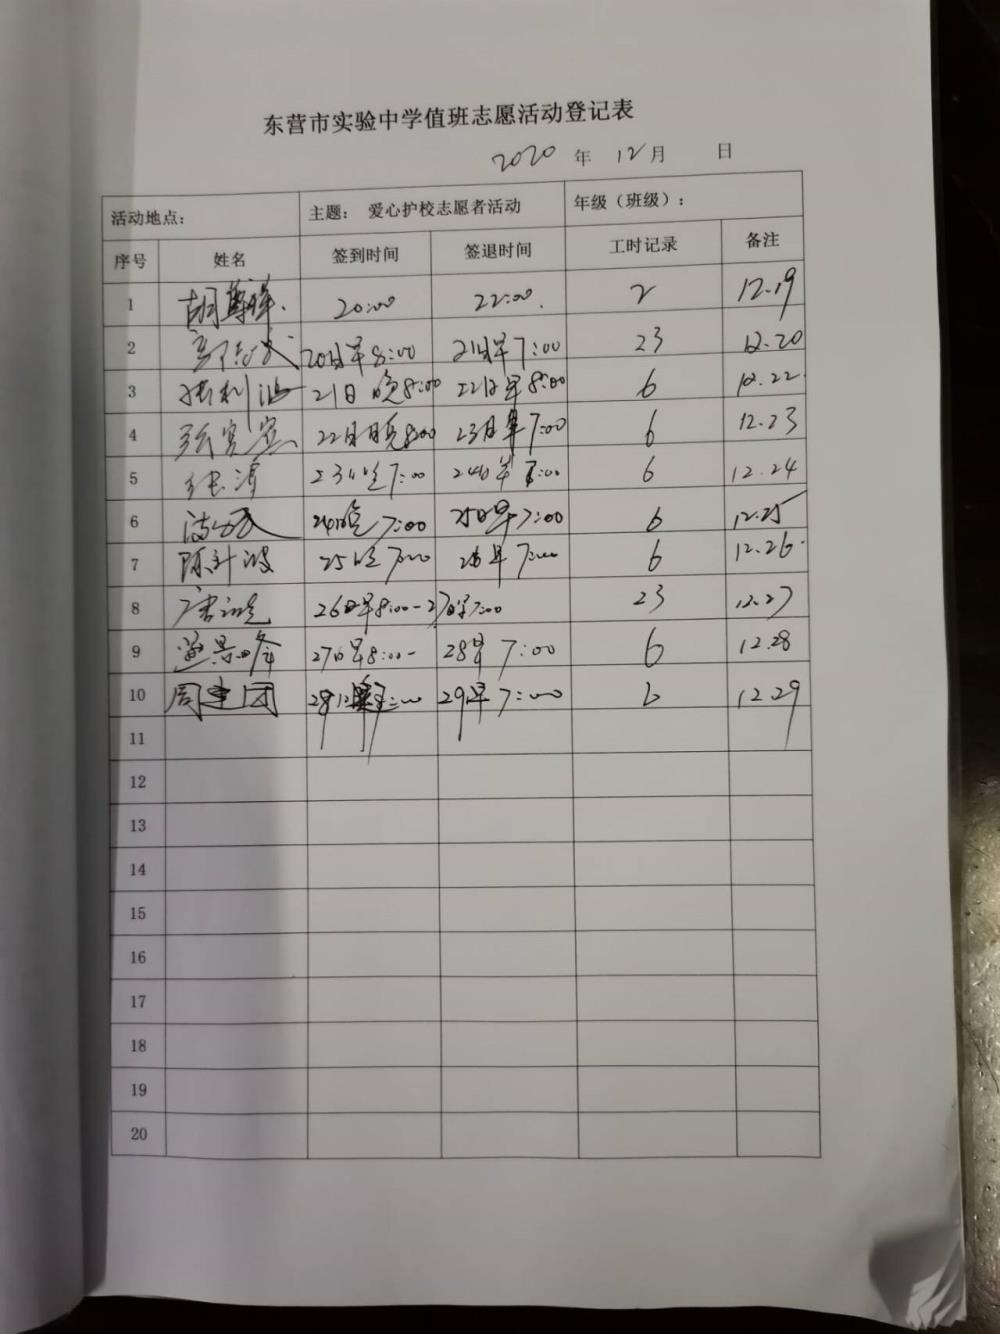 东营市实验中学值班志愿活动登记表
2020 年 12月 日
活动地点： 主题： 爱心护校志愿者活动 年级（班级）：
序号 姓名 签到时间 签退时间 工时记录 备注
1 20:00 22:00. 2 12.19
2 20日早8:00 21日早7:00 23 12.20
3 张利 21日晚8:00 22日早8:00 6 12.22
4 22日晚8:00 23日早7:00 6 12.23
5 23日晚7:00 24日早7:00 6 12.24
6 24日晚7:00 25日早7:00 6 12.25
7 陈 波 25晚7:00 26早7:00 6 12.26.
8 26日早8:00-27日早7:00 23 12.27
9 景 27日早8:00- 28早7:00 6 12.28
10 周建团 28 :00 29早7:00 6 12.29
11
12
13
14
15
16
17
18
19
20